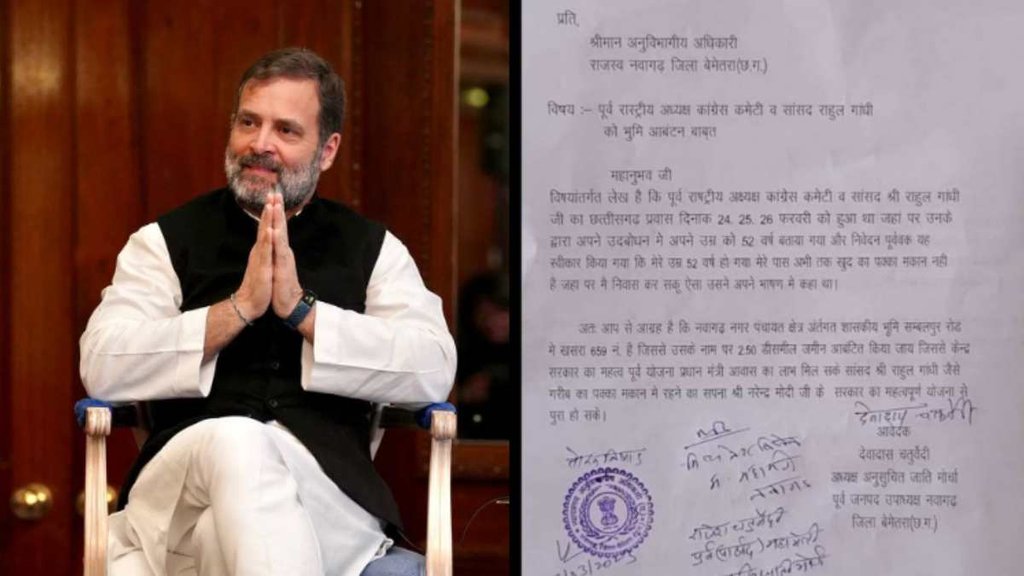 प्रति,
श्रीमान अनुविभागीय अधिकारी
राजस्व नवागढ़ जिला बेमेतरा(छ.ग.)
विषय :– पूर्व रास्ट्रीय अध्यक्ष कांग्रेस कमेटी व सांसद राहुल गांधी
को भुमि आबंटन बाबत्
महानुभव जी
विषयांतर्गत लेख है कि पूर्व राष्ट्रीय अध्यक्ष कांग्रेस कमेटी व सांसद श्री राहुल गांधी
जी का छत्तीसगढ़ प्रवास दिनाक 24. 25. 26 फरवरी को हुआ था जहां पर उनके
द्वारा अपने उदबोधन मे अपने उम्र को 52 वर्ष बताया गया और निवेदन पूर्ववक यह
स्वीकार किया गया कि मेरे उम्र 52 वर्ष हो गया मेरे पास अभी तक खुद का पक्का मकान नही
है जहा पर मै निवास कर सकू ऐसा उसने अपने भाषण मे कहा था।
अतः आप से आग्रह है कि नवागढ़ नगर पंचायत क्षेत्र अंर्तगत शासकीय भुमि सम्बलपुर रोड
मे खसरा 659 नं. है जिससे उसके नाम पर 2.50 डीसमील जमीन आबंटित किया जाय जिससे केन्द्र
सरकार का महत्व पूर्ण योजना प्रधान मंत्री आवास का लाभ मिल सके सांसद श्री राहुल गांधी जैसे
गरीब का पक्का मकान मे रहने का सपना श्री नरेन्द मोदी जी के सरकार का महत्वपूर्ण योजना से
पुरा हो सके।
आवेदक
देवादास चतुर्वेदी
अध्यक्ष अनुसुचित जाति मोर्चा
पूर्व जनपद उपाध्यक्ष नवागढ़
जिला बेमेतरा(छ.ग.)